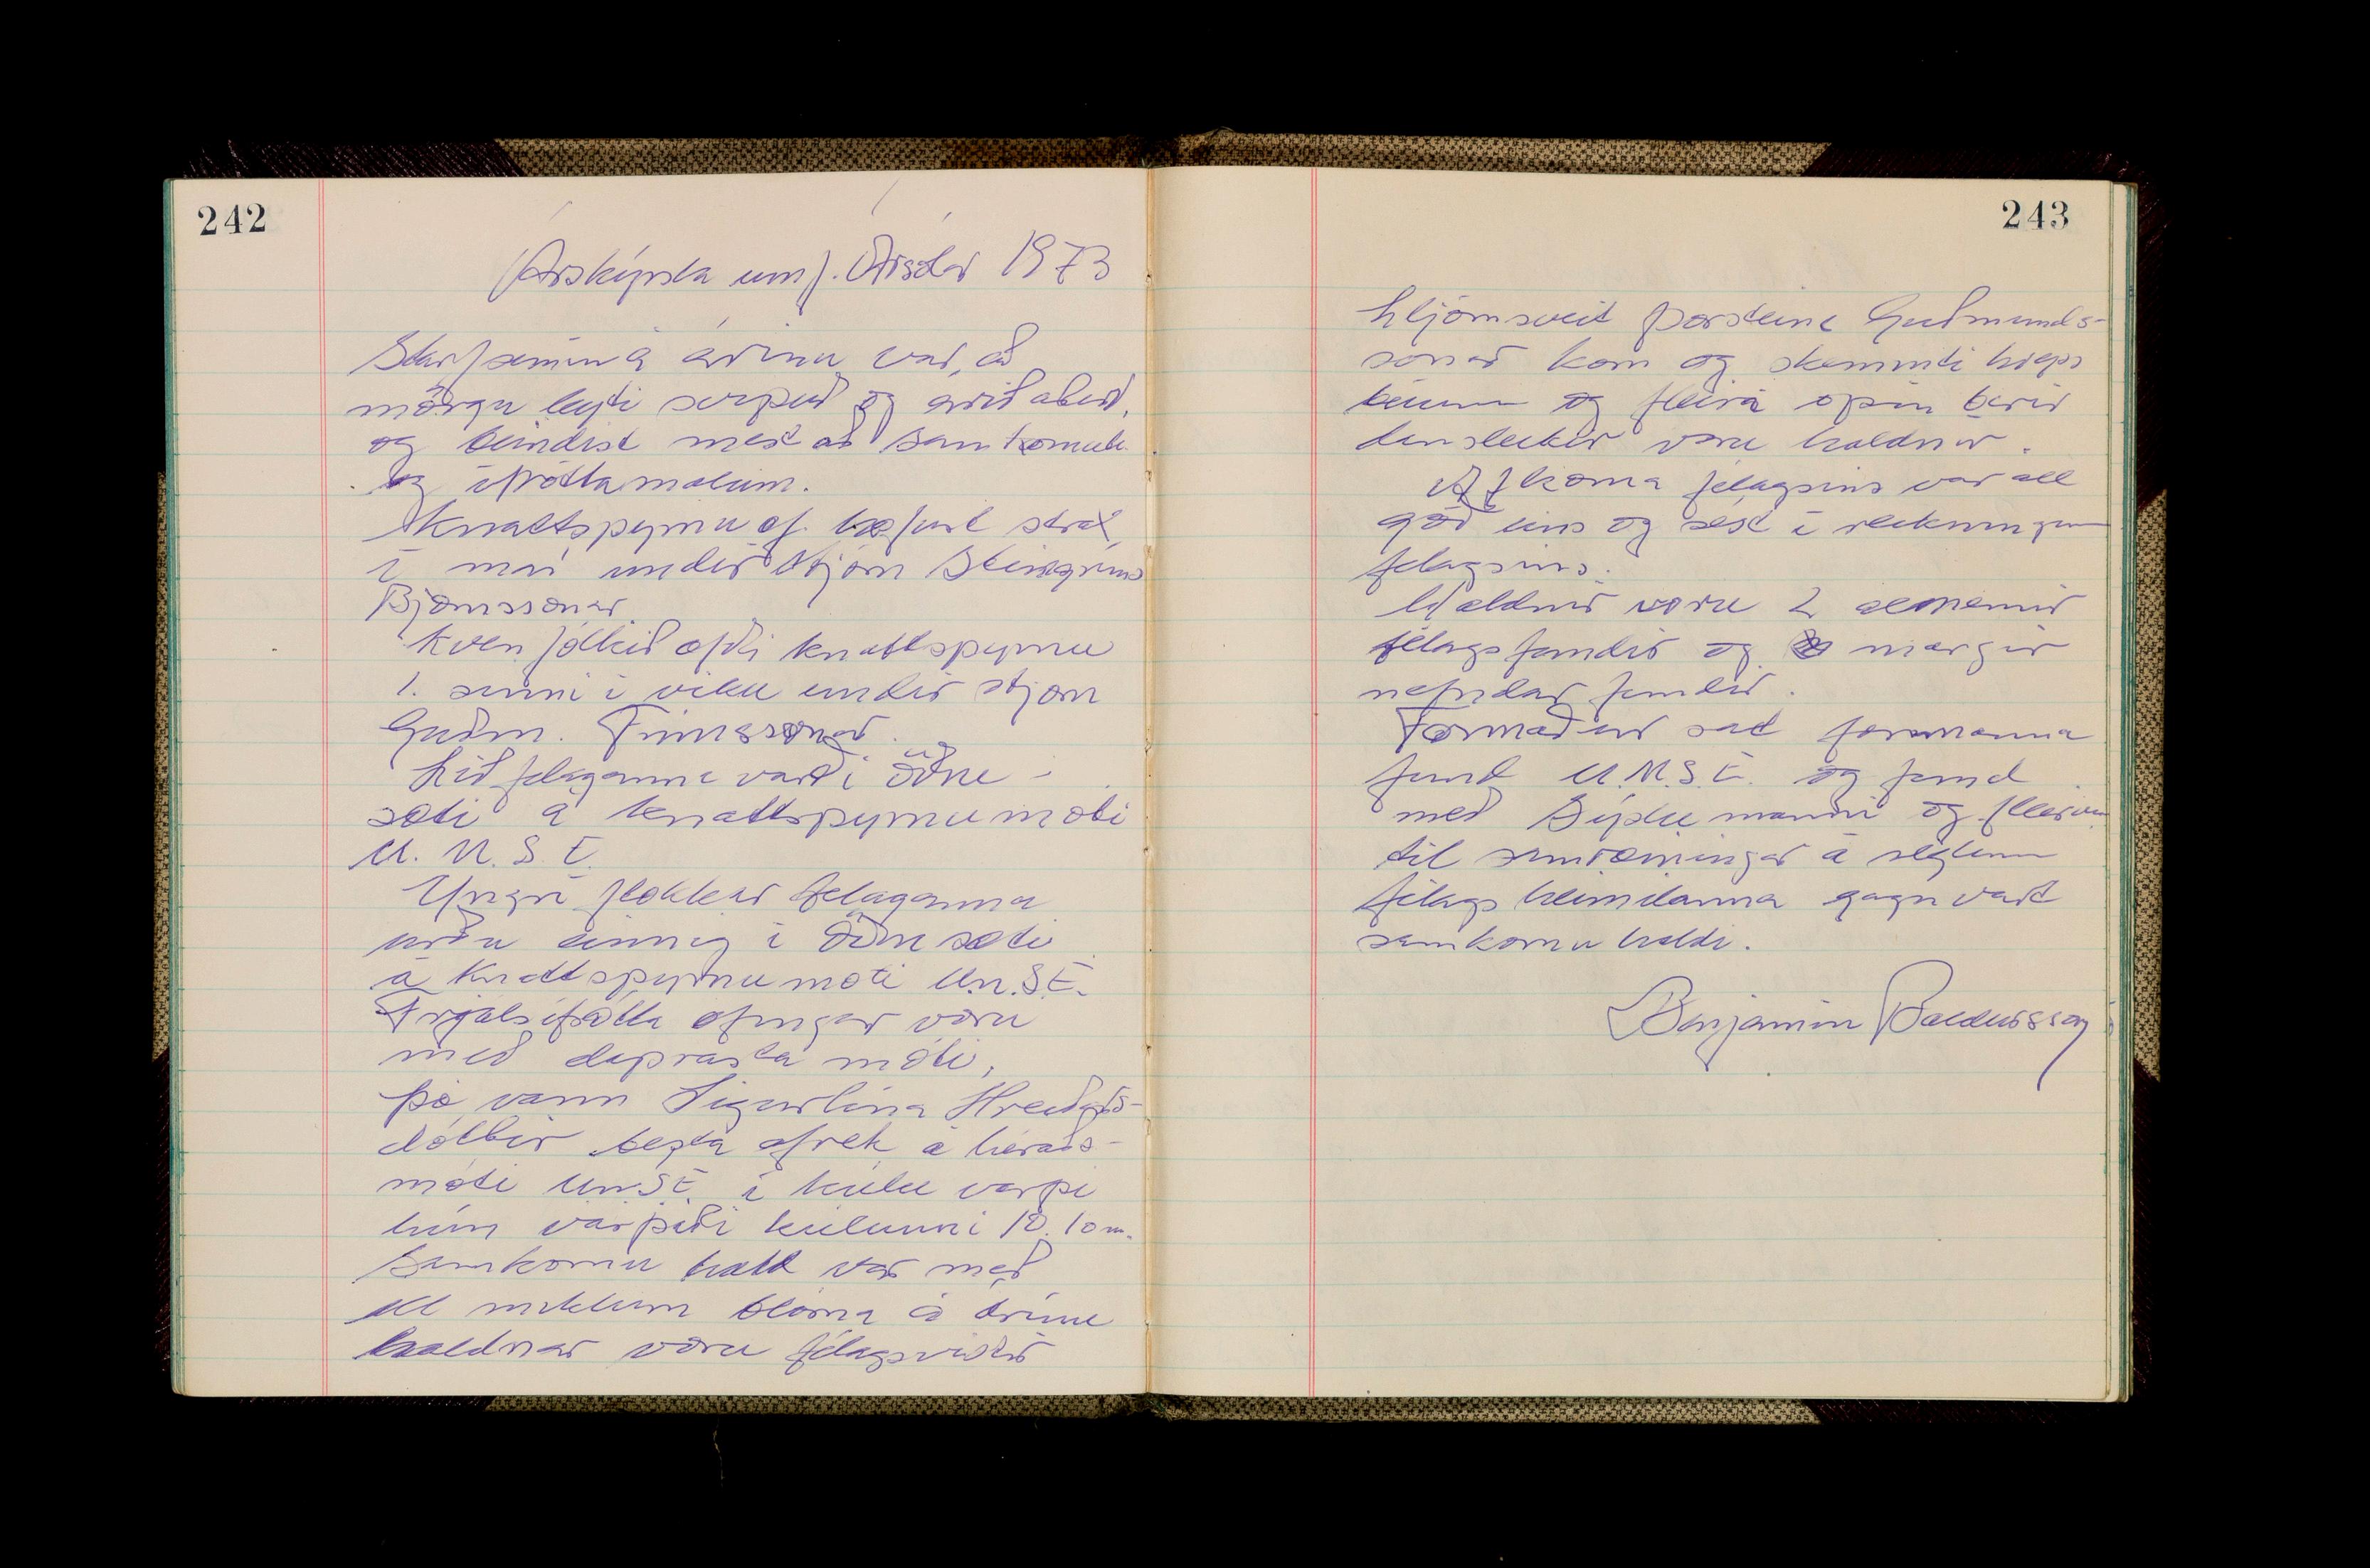 242
Ársskýrsla umf. Ársól 1973
Starfsemin á árinu var, að
mörgu leyti svipuð og árið áður,
og beindist mest að samkomuh.
og íþróttamálum.
Knattspyrnu æf. hófust strax
í maí undir stjórn Steingríms
Björnssonar
Kvenfólkið æfði knattspyrnu
1. sinni í viku undir stjórn
Guðm. Finnssonar.
Lið félaganna varð í öðru
sæti á knattspyrnumóti
U.M.S.E.
Yngri flokkar félaganna
urðu einnig í öðru sæti
á Knattspyrnumóti U.M.S.E.
Frjálsíþrótta æfingar voru
með daprasta móti,
þó vann Sigurlína Hreiðars-
dóttir besta afrek á héraðs-
móti U.M.S.E. í kúlu varpi
hún varpaði kúlunni 10.10 m.
Samkomu hald var með
all miklum blóma á árinu
haldnar voru félagsvistir
243
hljómsveit Þorsteins Guðmunds-
sonar kom og skemmti hreps
búum og fleira opin berir
dansleikir voru haldnir.
Afkoma félagsins var all
góð eins og sést í reikningum
félagsins.
Haldnir voru 2 almennir
félagsfundir og margir
nefndar fundir.
Formaður sat formanna
fund U.M.S.E. og fund
með Sýslu manni og fleirum
til samræmingar á reglum
félags heimilanna gagnvart
samkomu haldi.
Benjamín Baldursson